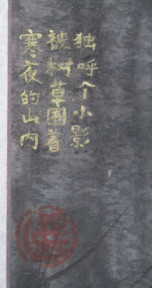 独呼个小影
被树草围着
寒夜的山内